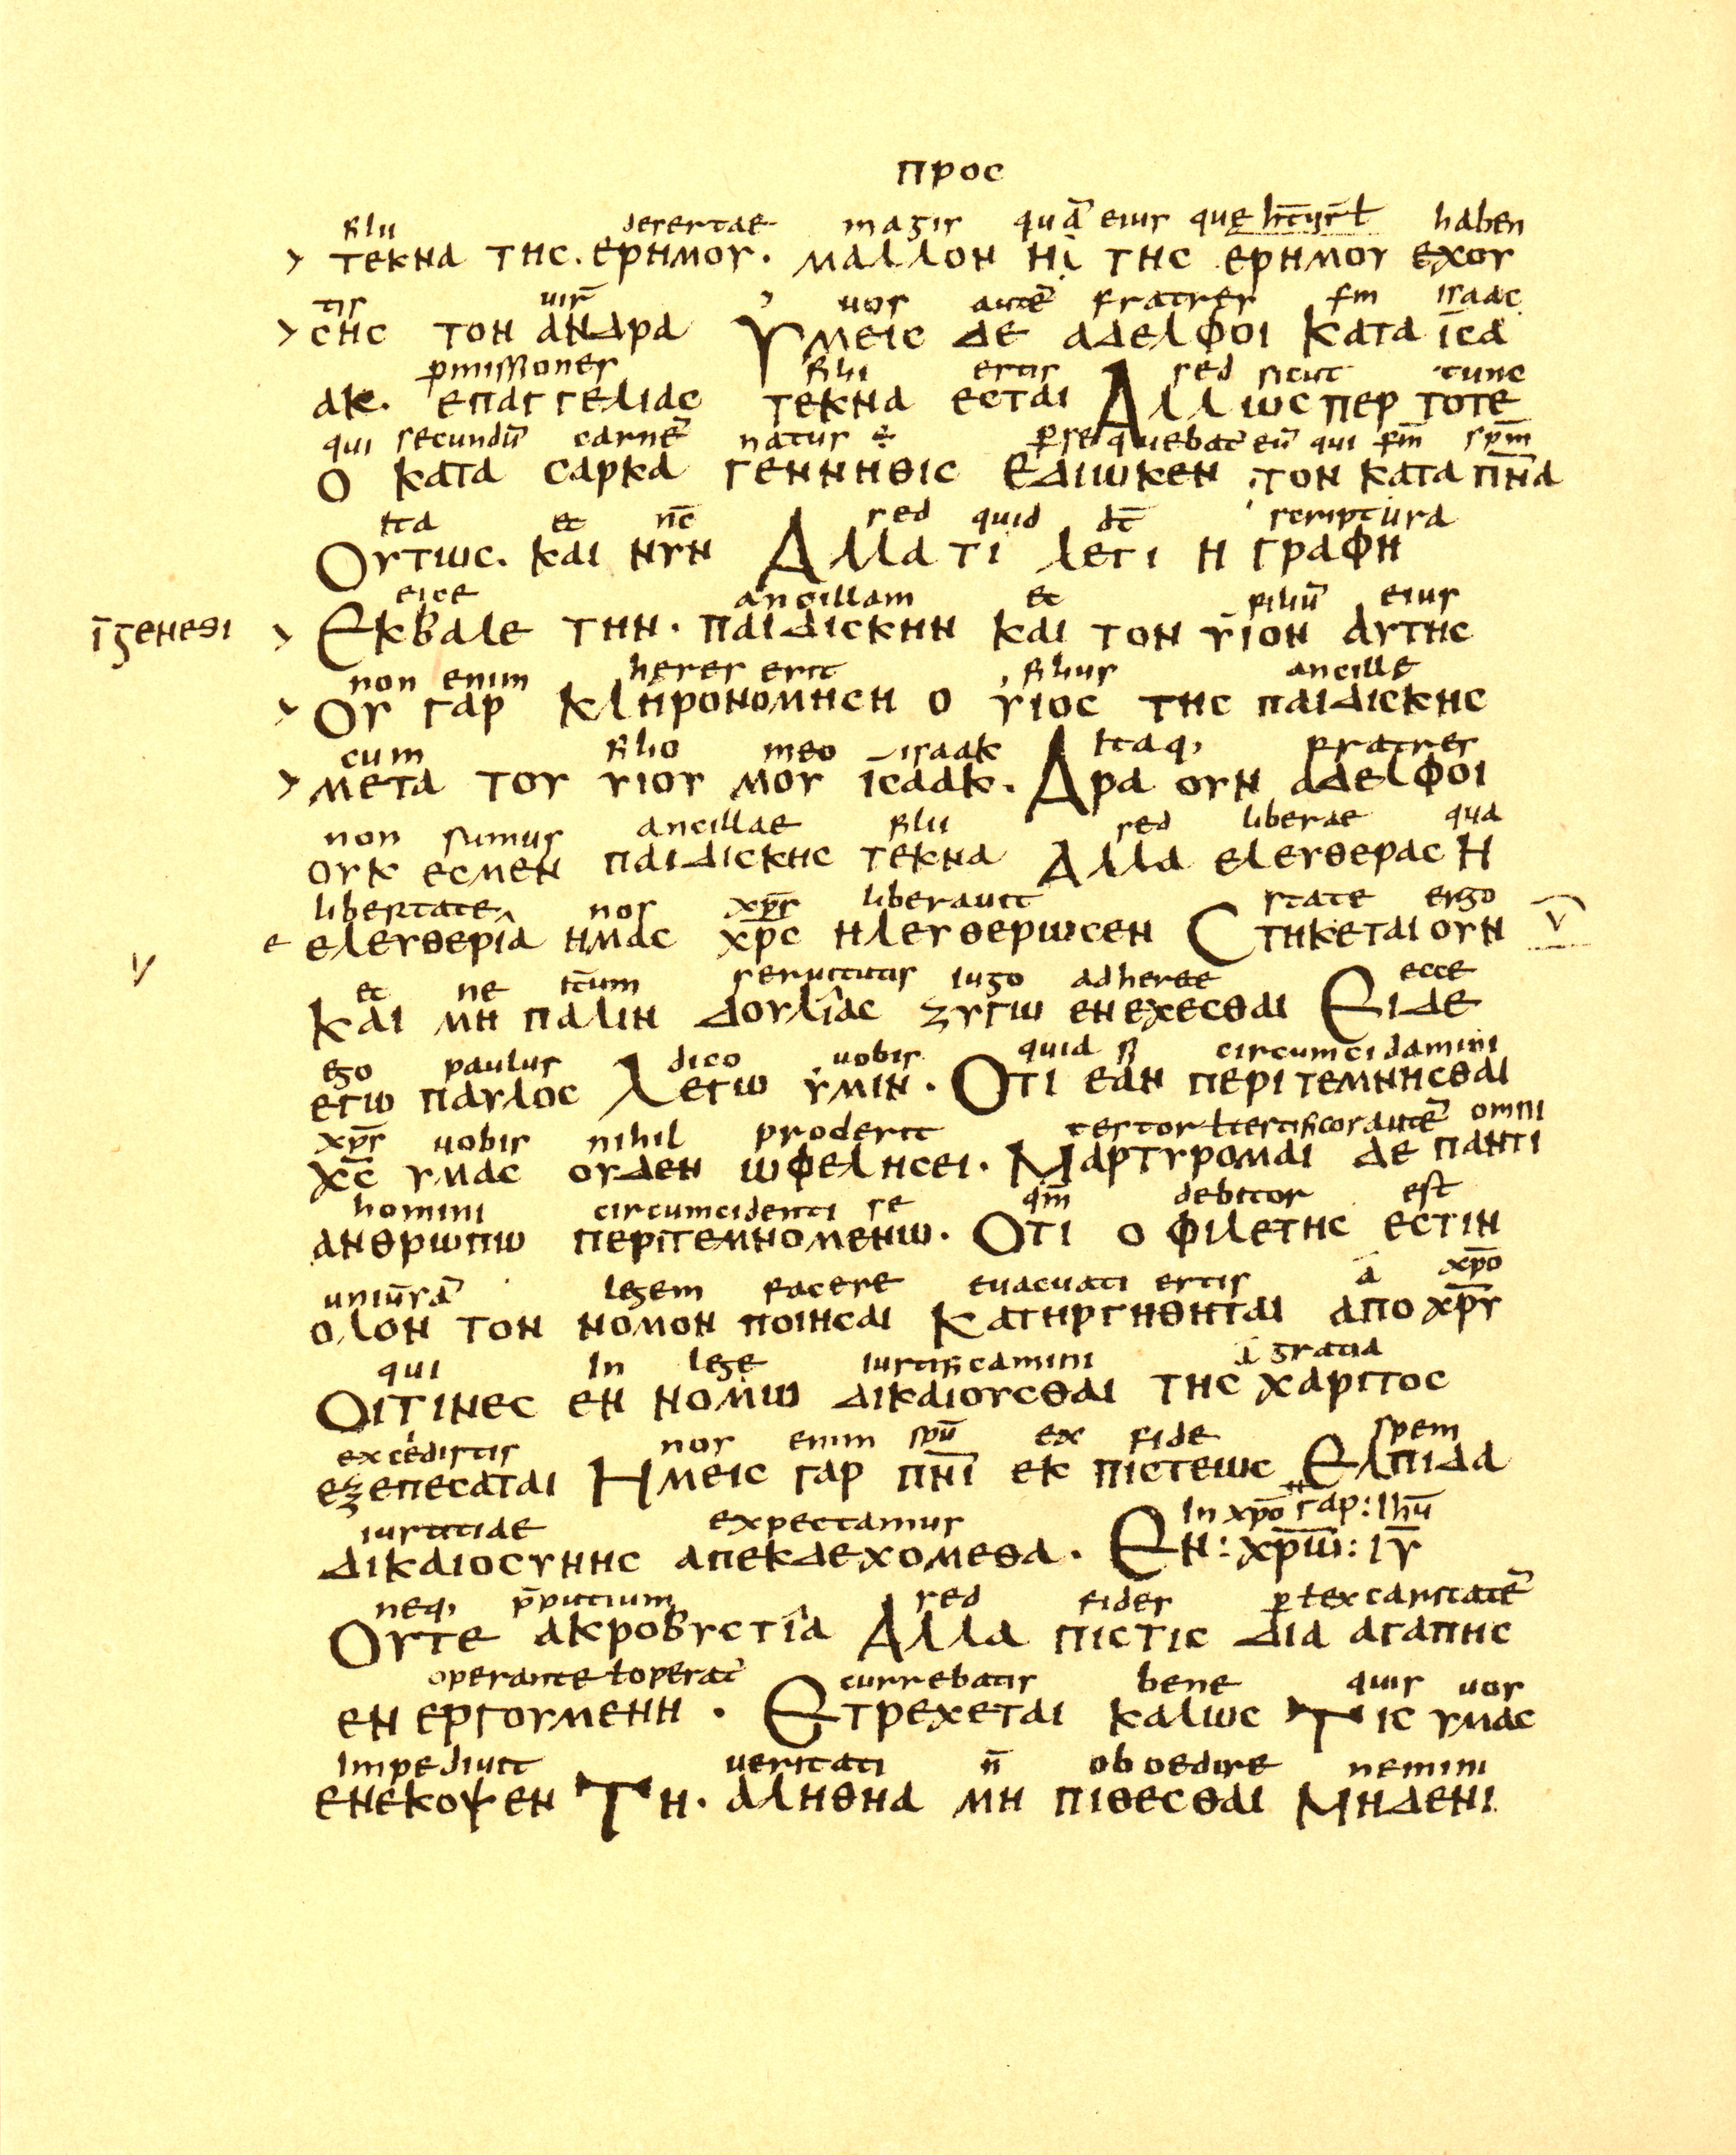 προс
filii desertae magis quā eius quę h̄t uir̄ ł haben
> τεκνα τηс. ερημου. μαλλον ηι τηс ερημου εχου
tis uir̄ uos autē fratres s̄m isaac
> сηс τον ανδρα Υμειс δε αδελφοι κατα ῑсα
p̄missiones filii estis sed sicut tunc
ακ. επαγγελιαс τεκνα εсται Αλλωс περ τοτε
qui secundū carnē natus ÷ p̄sequebat̄ eū qui s̄m sp̄m
ο κατα сαρκα γεννηθιс εδιωκεν τον κατα π̄ν̄α
ita et n̄c sed quid dt̄ scriptura
Ουτωс. και νυν Αλλα τι λεγι η γραφη
eice ancillam et filiū eius
ῑgενεσι > Εκβαλε την. παιδιсκην και τον υιον αυτηс
non enim heres erit filius ancillę
> Ου γαρ κληρονομηсη ο υιοс τηс παιδιсκηс
cum filio meo isaak itaq, fratres
> μετα του υιου μου ῑсαακ. Αρα ουν αδελφοι
non sumus ancillae filii sed liberae qua
ουκ εсμεν παιδιсκηс τεκνα Αλλα ελευθεραс Η
libertate nos xp̄s liberauit state ergo
ε ελευθερια ημαс χ̄ρ̄с ηλευθερωсεν Сτηκεται ουν V
V
et ne it̄um seruitutis iugo adherete ecce
και μη παλιν δουλιαс ζυγω ενεχεсθαι Ειδε
ego paulus dico uobis quia si circumcidamini
εγω παυλοс Λεγω υμιν. Οτι εαν περιτεμνηсθαι
xp̄s uobis nihil proderit testor ł testificor autē omni
χ̄с̄ υμαс ουδεν ωφεληсει. Μαρτυρομαι δε παντι
homini circumcidenti se qm̄ debitor est
ανθρωπω περιτεμνομενω. Οτι ο φιλετηс εсτιν
uniūrsā legem facere euacuati estis ā xp̄o
ολον τον νομον ποιηсαι κατηργηθηται απο χ̄ρ̄υ
qui in lege iustificamini ā gratia
Οιτινεс εν νομω δικαιουсθαι τηс χαριτοс
excedistis nos enim sp̄u ex fide spem
εξεπεсαται Ημειс γαρ π̄ν̄ι εκ πιсτεωс Ελπιδα
iustitiae expectamus in xp̄o γαρ: ihū
δικαιοсυνηс απεκδεχομεθα. Εν: χ̄ρ̄ω: ῑῡ
neq, p̄putium sed fides p̄ ł ex caritatē
Ουτε ακροβυсτια Αλλα πιсτιс δια αγαπηс
operante ł operat̄ currebatis bene quis uos
ενεργουμενη. Ετρεχεται καλωс Τιс υμαс
impediuit ueritati n̄ oboedire nemini
ενεκοψεν Τη. αληθηα μη πιθεсθαι Μηδενι